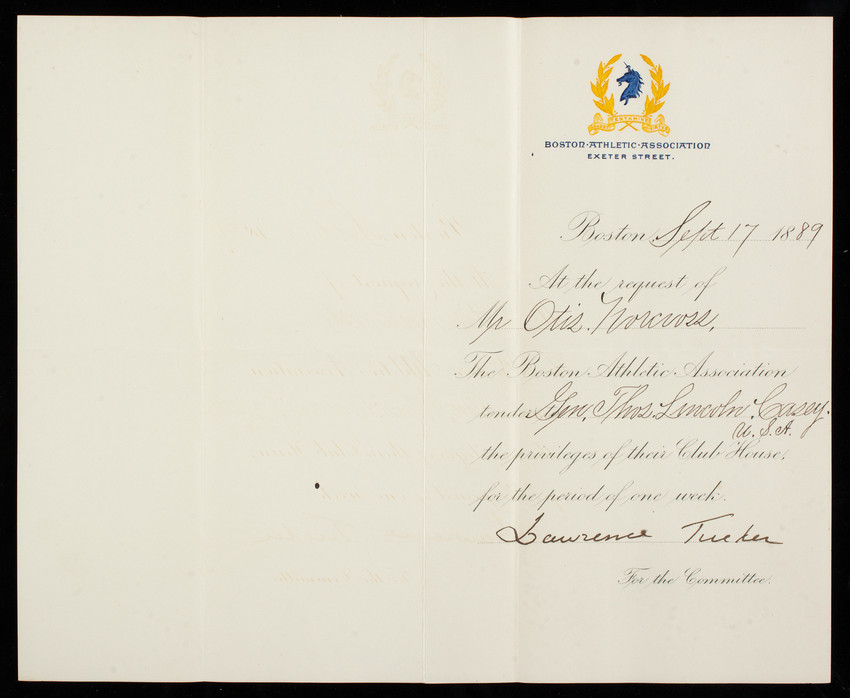 BOSTON·ATHLETIC·ASSOCIATION
EXETER STREET.
Boston, Sept 17 1889
At the request of
Mr Otis Norcross,
The Boston Athletic Association
tender Gen, Thos. Lincoln Casey.
U.S.A.
the privileges of their Club House,
for the period of one week.
Lawrence Tucker
For the Committee.